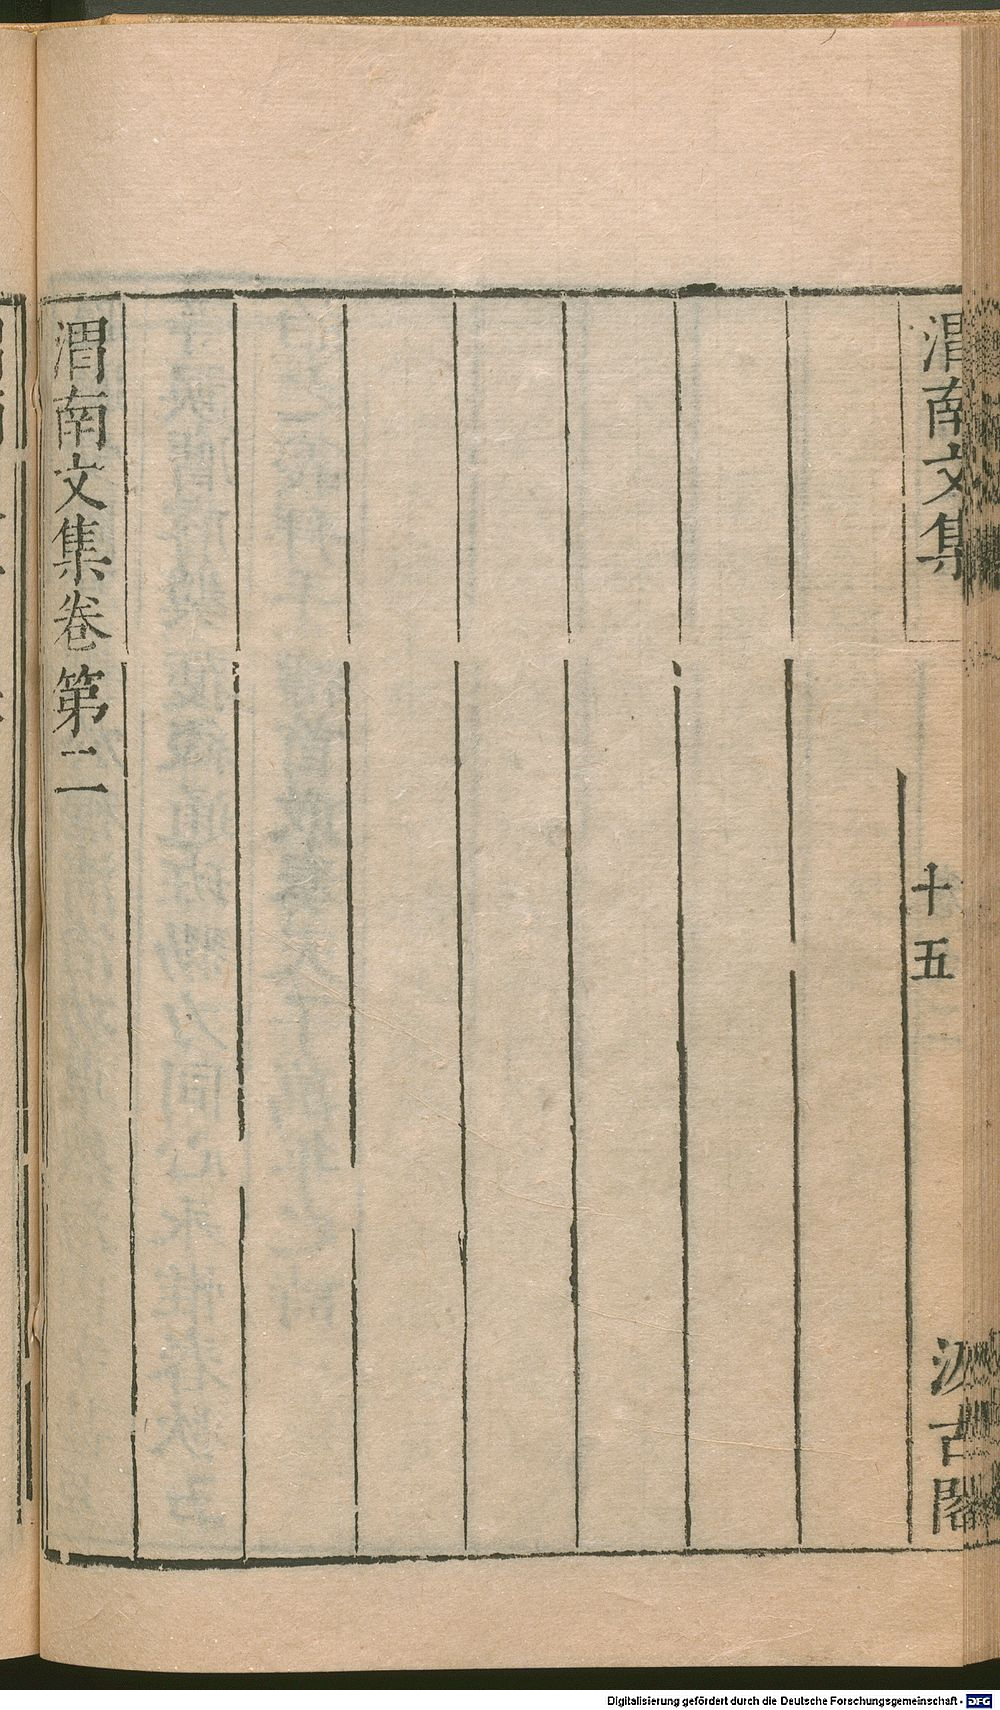 渭南文集
十五
汲古閣
渭南文集卷第二
Digitalisierung gefördert durch die Deutsche Forschungsgemeinschaft - DFG